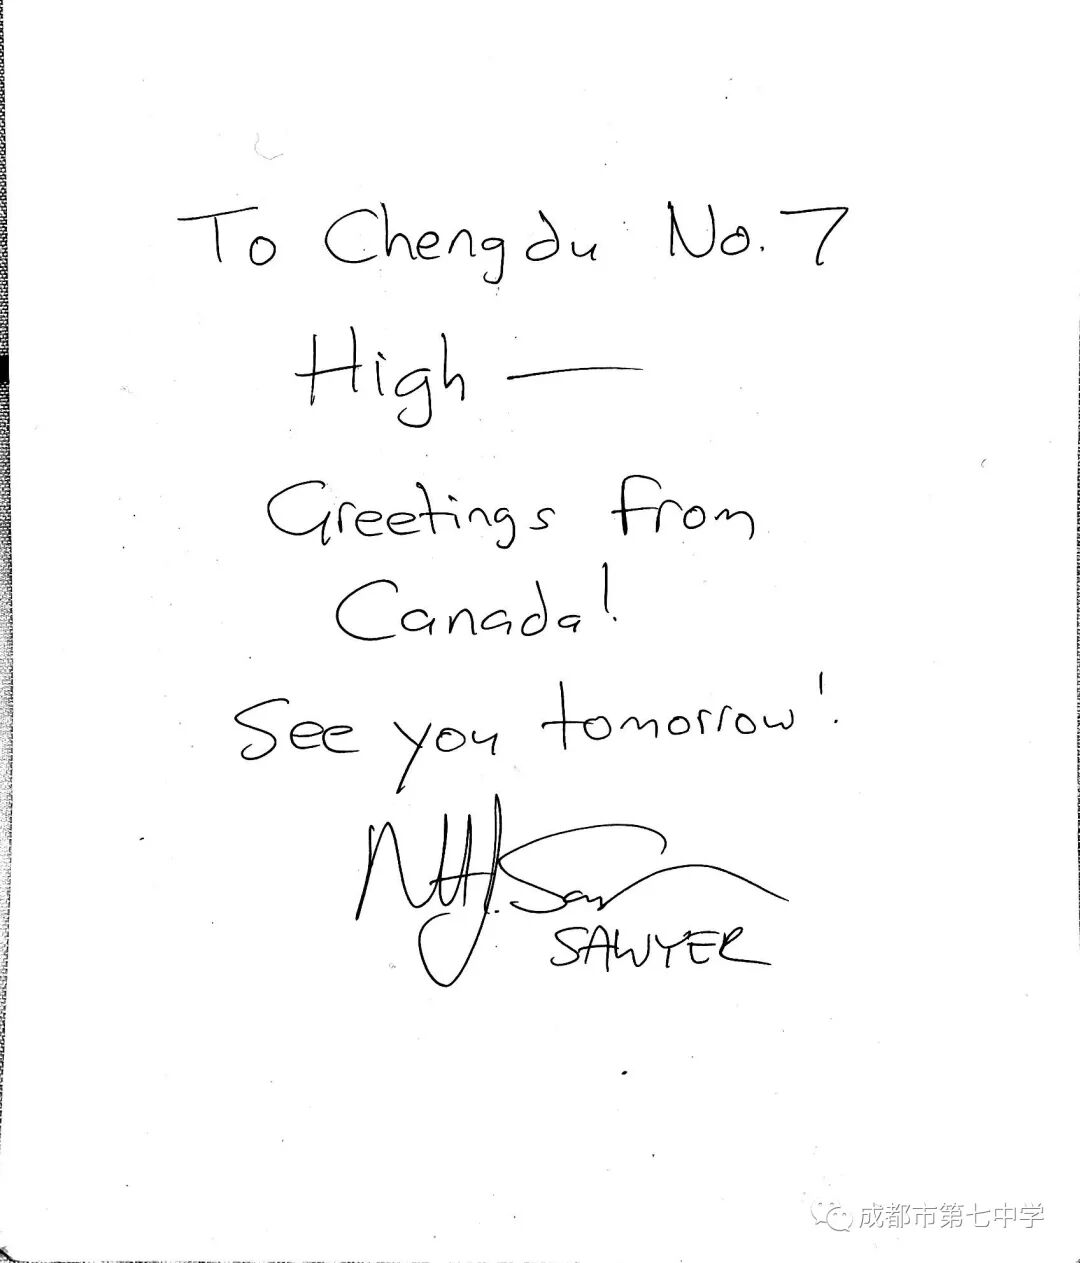 To Chengdu No. 7
High —
Greetings from
Canada!
See you tomorrow!
SAWYER
成都市第七中学